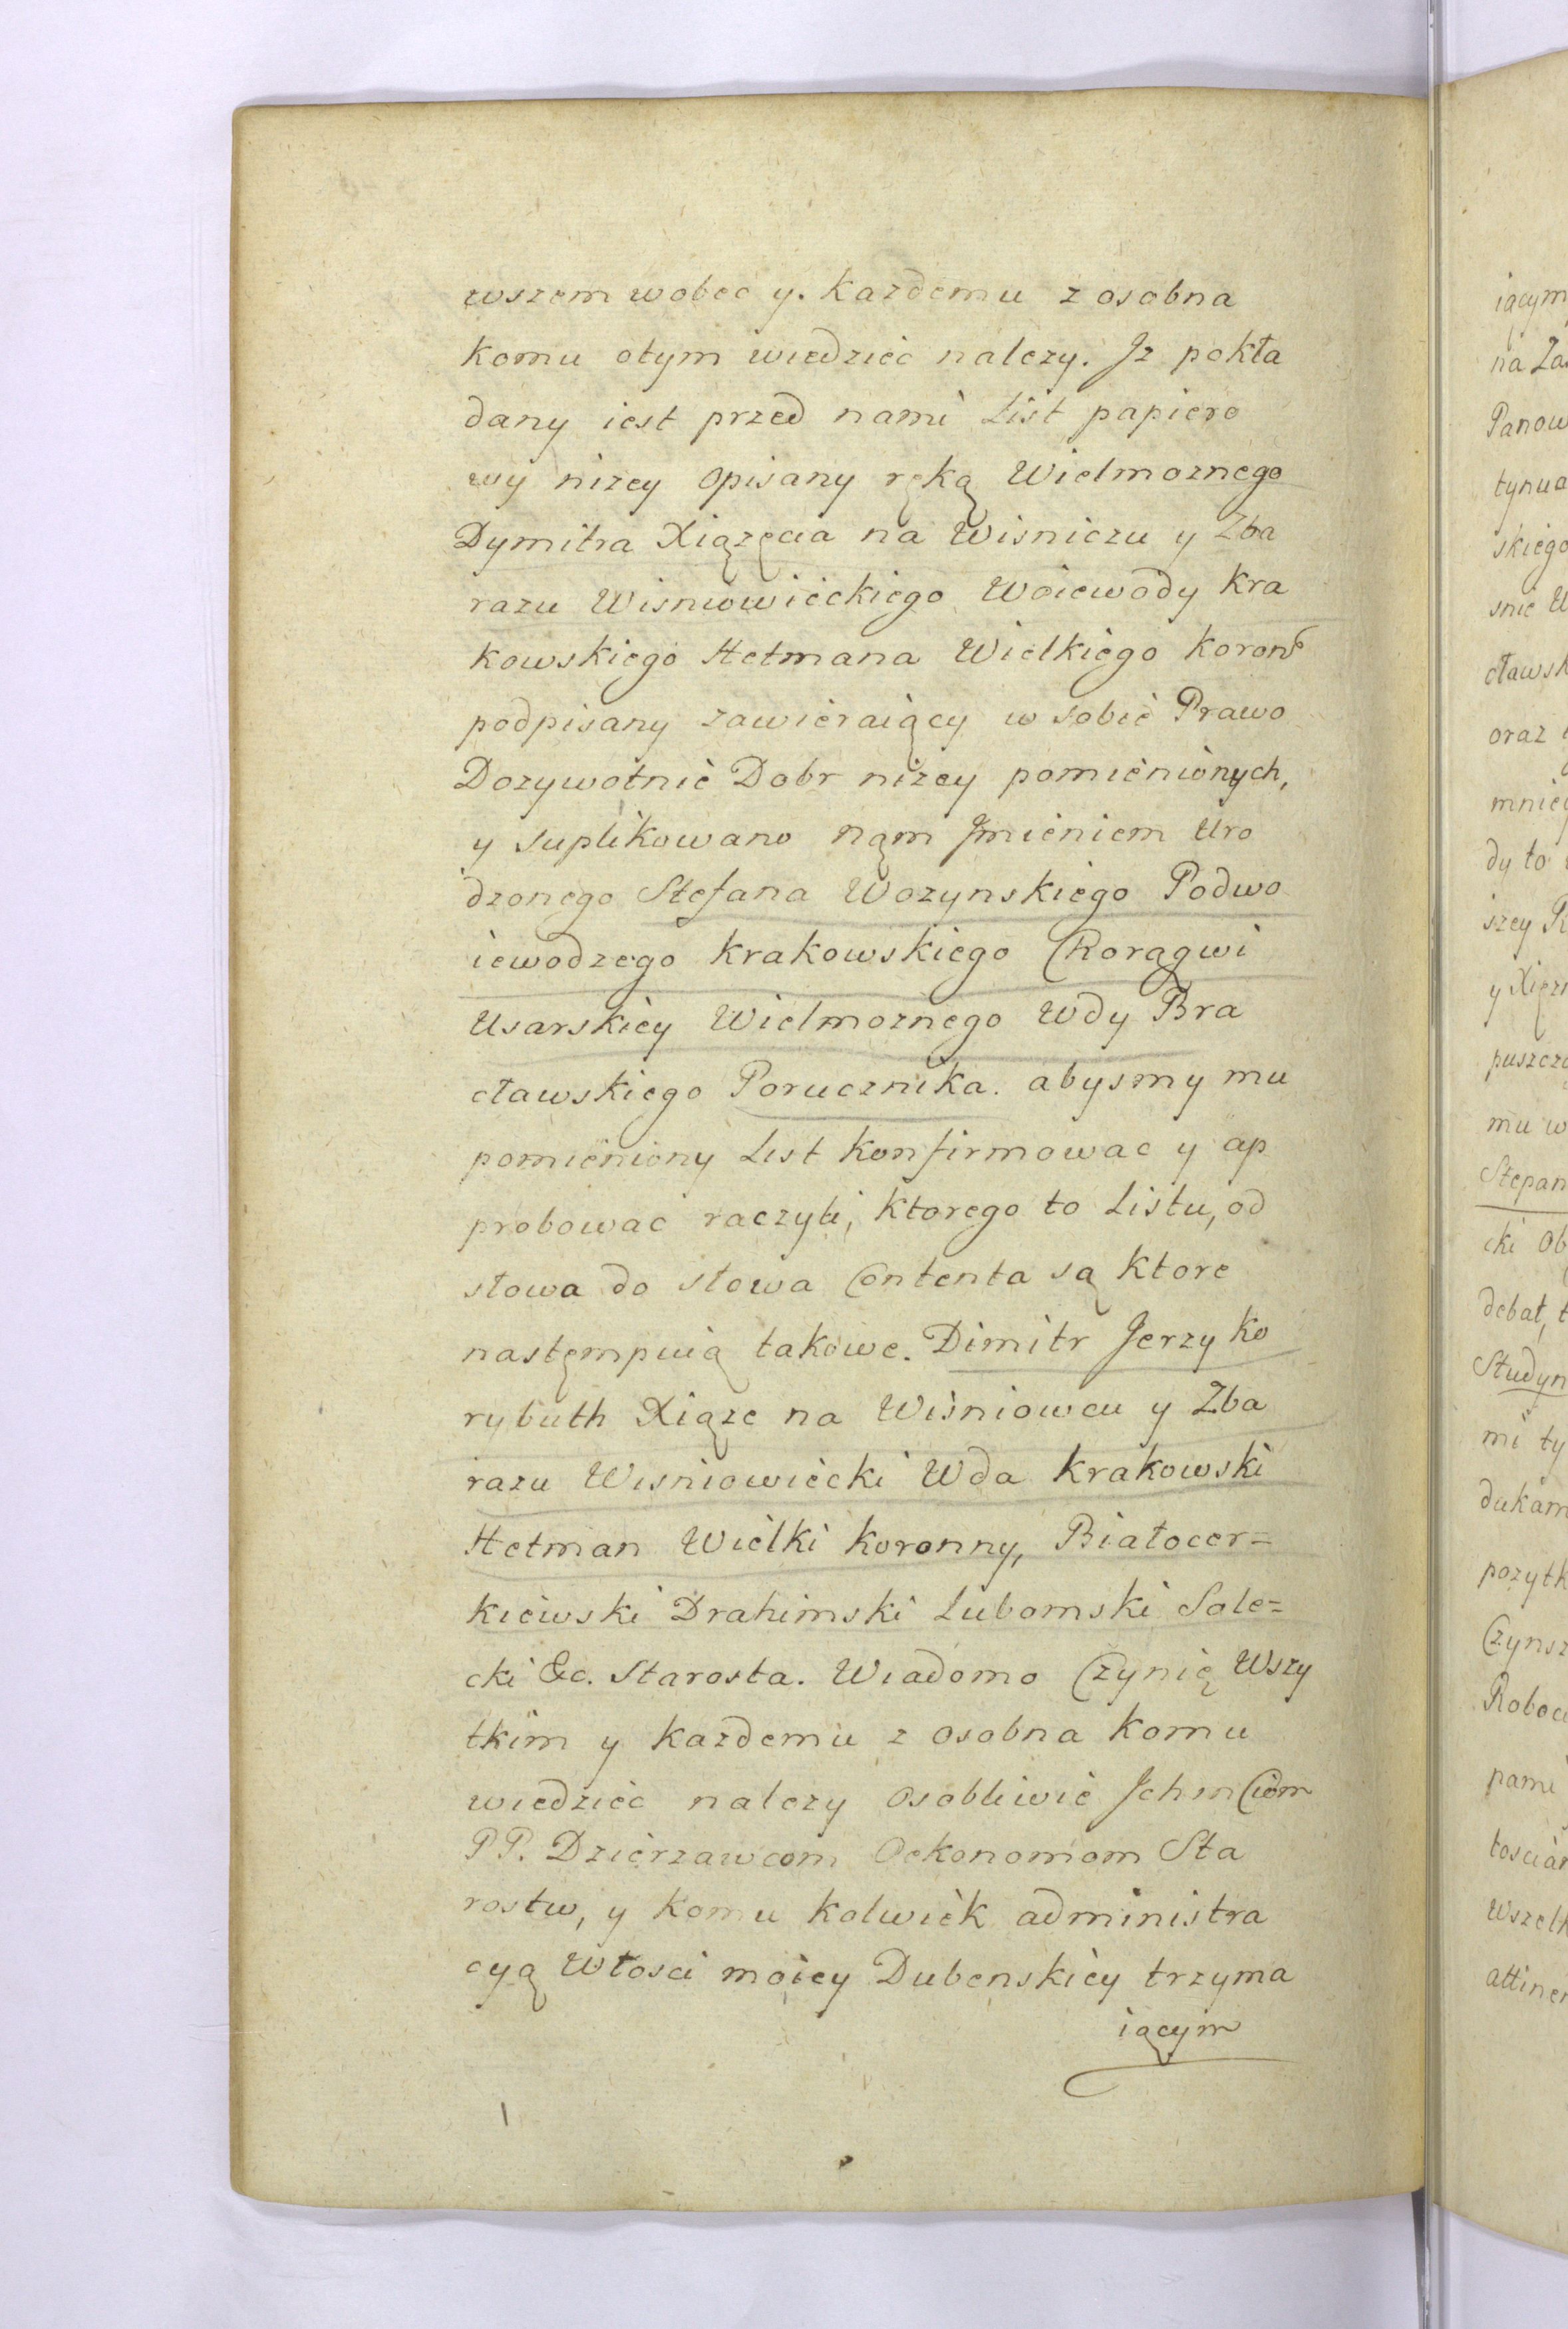 wszem wobec y. kazdemu z osobna
komu otym wiedziec nalezy. Jz pokła
dany iest przed nami List papiero
wy nizey opisany ręką Wielmoznego
Dymitra Xiązęcia na Wisniczu y Zba
razu Wisniowieckiego Woiewody kra
kowskiego Hetmana Wielkiego koronº
podpisany zawieraiący w sobie Prawo
Dozywotnie Dobr nizey pomienionych,
y suplikowano nąm Jmieniem Uro
dzonego Stefana Wozynskiego Podwo
iewodzego krakowskiego Chorągwi
Usarskiey Wielmoznego Wdy Bra
cławskiego Porucznika. abysmy mu
pomieniony List konfirmowac y ap
probowac raczyli, ktorego to Listu, od
słowa do słowa Contenta są ktore
nastęmpuią takowe. Dimitr Jerzy ko
rybuth Xiąze na Wisniowcu y Zba
razu Wisniowiecki Wda krakowski
Hetman Wielki koronny, Białocer=
kiewski Drahimski Lubomski Sole=
cki &c. Starosta. Wiadomo Czynię Wszy
tkim y kazdemu z osobna komu
wiedziec nalezy osobliwie Jchm Ciom
PP. Dzierzawcom Oekonomom Sta
rostw, y komu kolwiek administra
cyą Włosci moiey Dubenskiey trzyma
iącym
iącym
na Za
Panow
tynua
skiego
snie U
cławsk
oraz
mniey
dy to
szey R
y Xięzn
puszcza
mu w
Stepan
cki Ob
debat, t
Studyn
mi ty
dukam
pozytk
Czynsz
Roboci
pami
tosciam
Wszelk
attinen